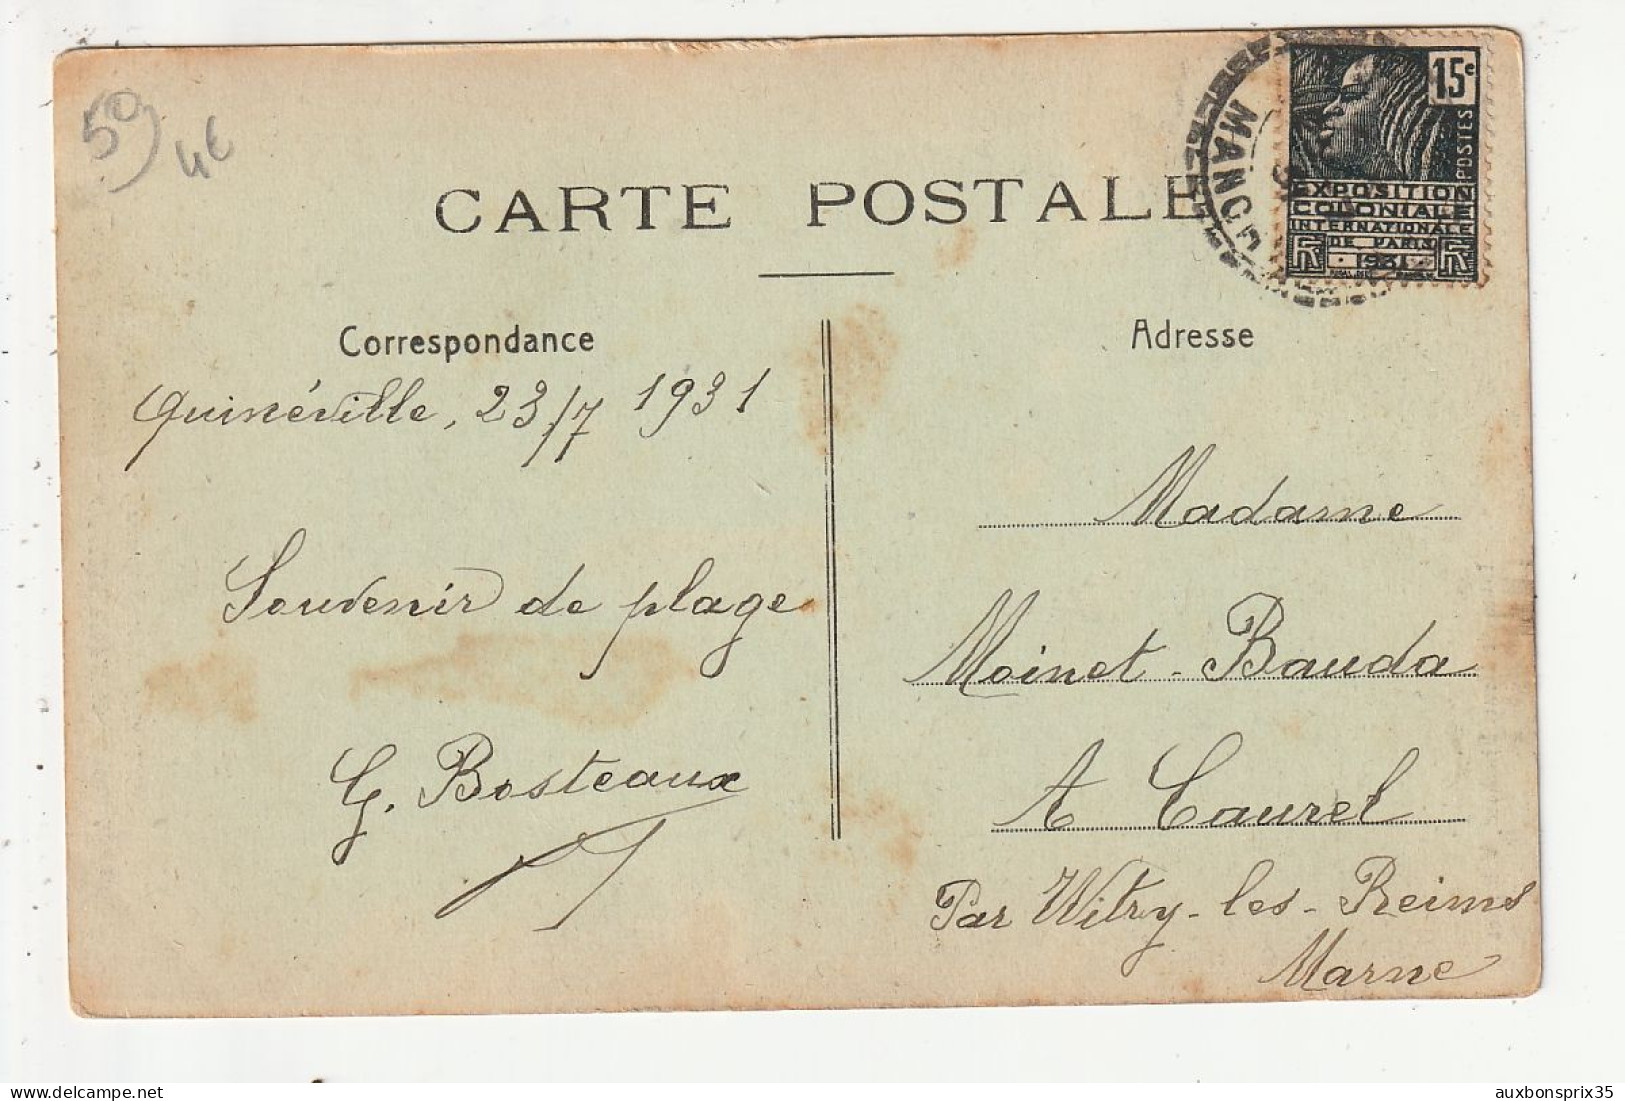 59
4€
CARTE POSTALE
MANCHE
15c
POSTES
EXPOSITION
COLONIALE
INTERNATIONALE
DE PARIS
1931
Correspondance
Quinéville, 23/7 1931
Souvenir de plage
G. Bosteaux
Adresse
Madame
Moinet-Bauda
A Caurel
Par Witry-les-Reims
Marne
auxbonsprix35